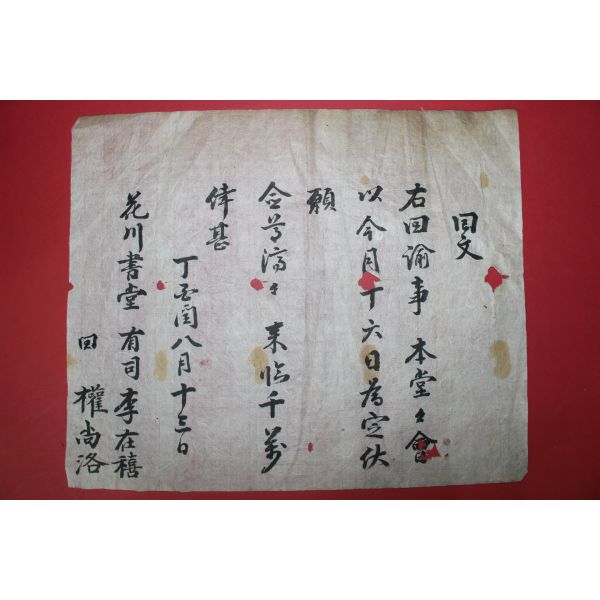 回文
右回諭事 本堂々會
以今月十六日爲定伏
願
僉尊濟々 来臨千萬
偉甚
丁酉閏八月十三日
花川書堂 有司 李在禧
回 權尚洛